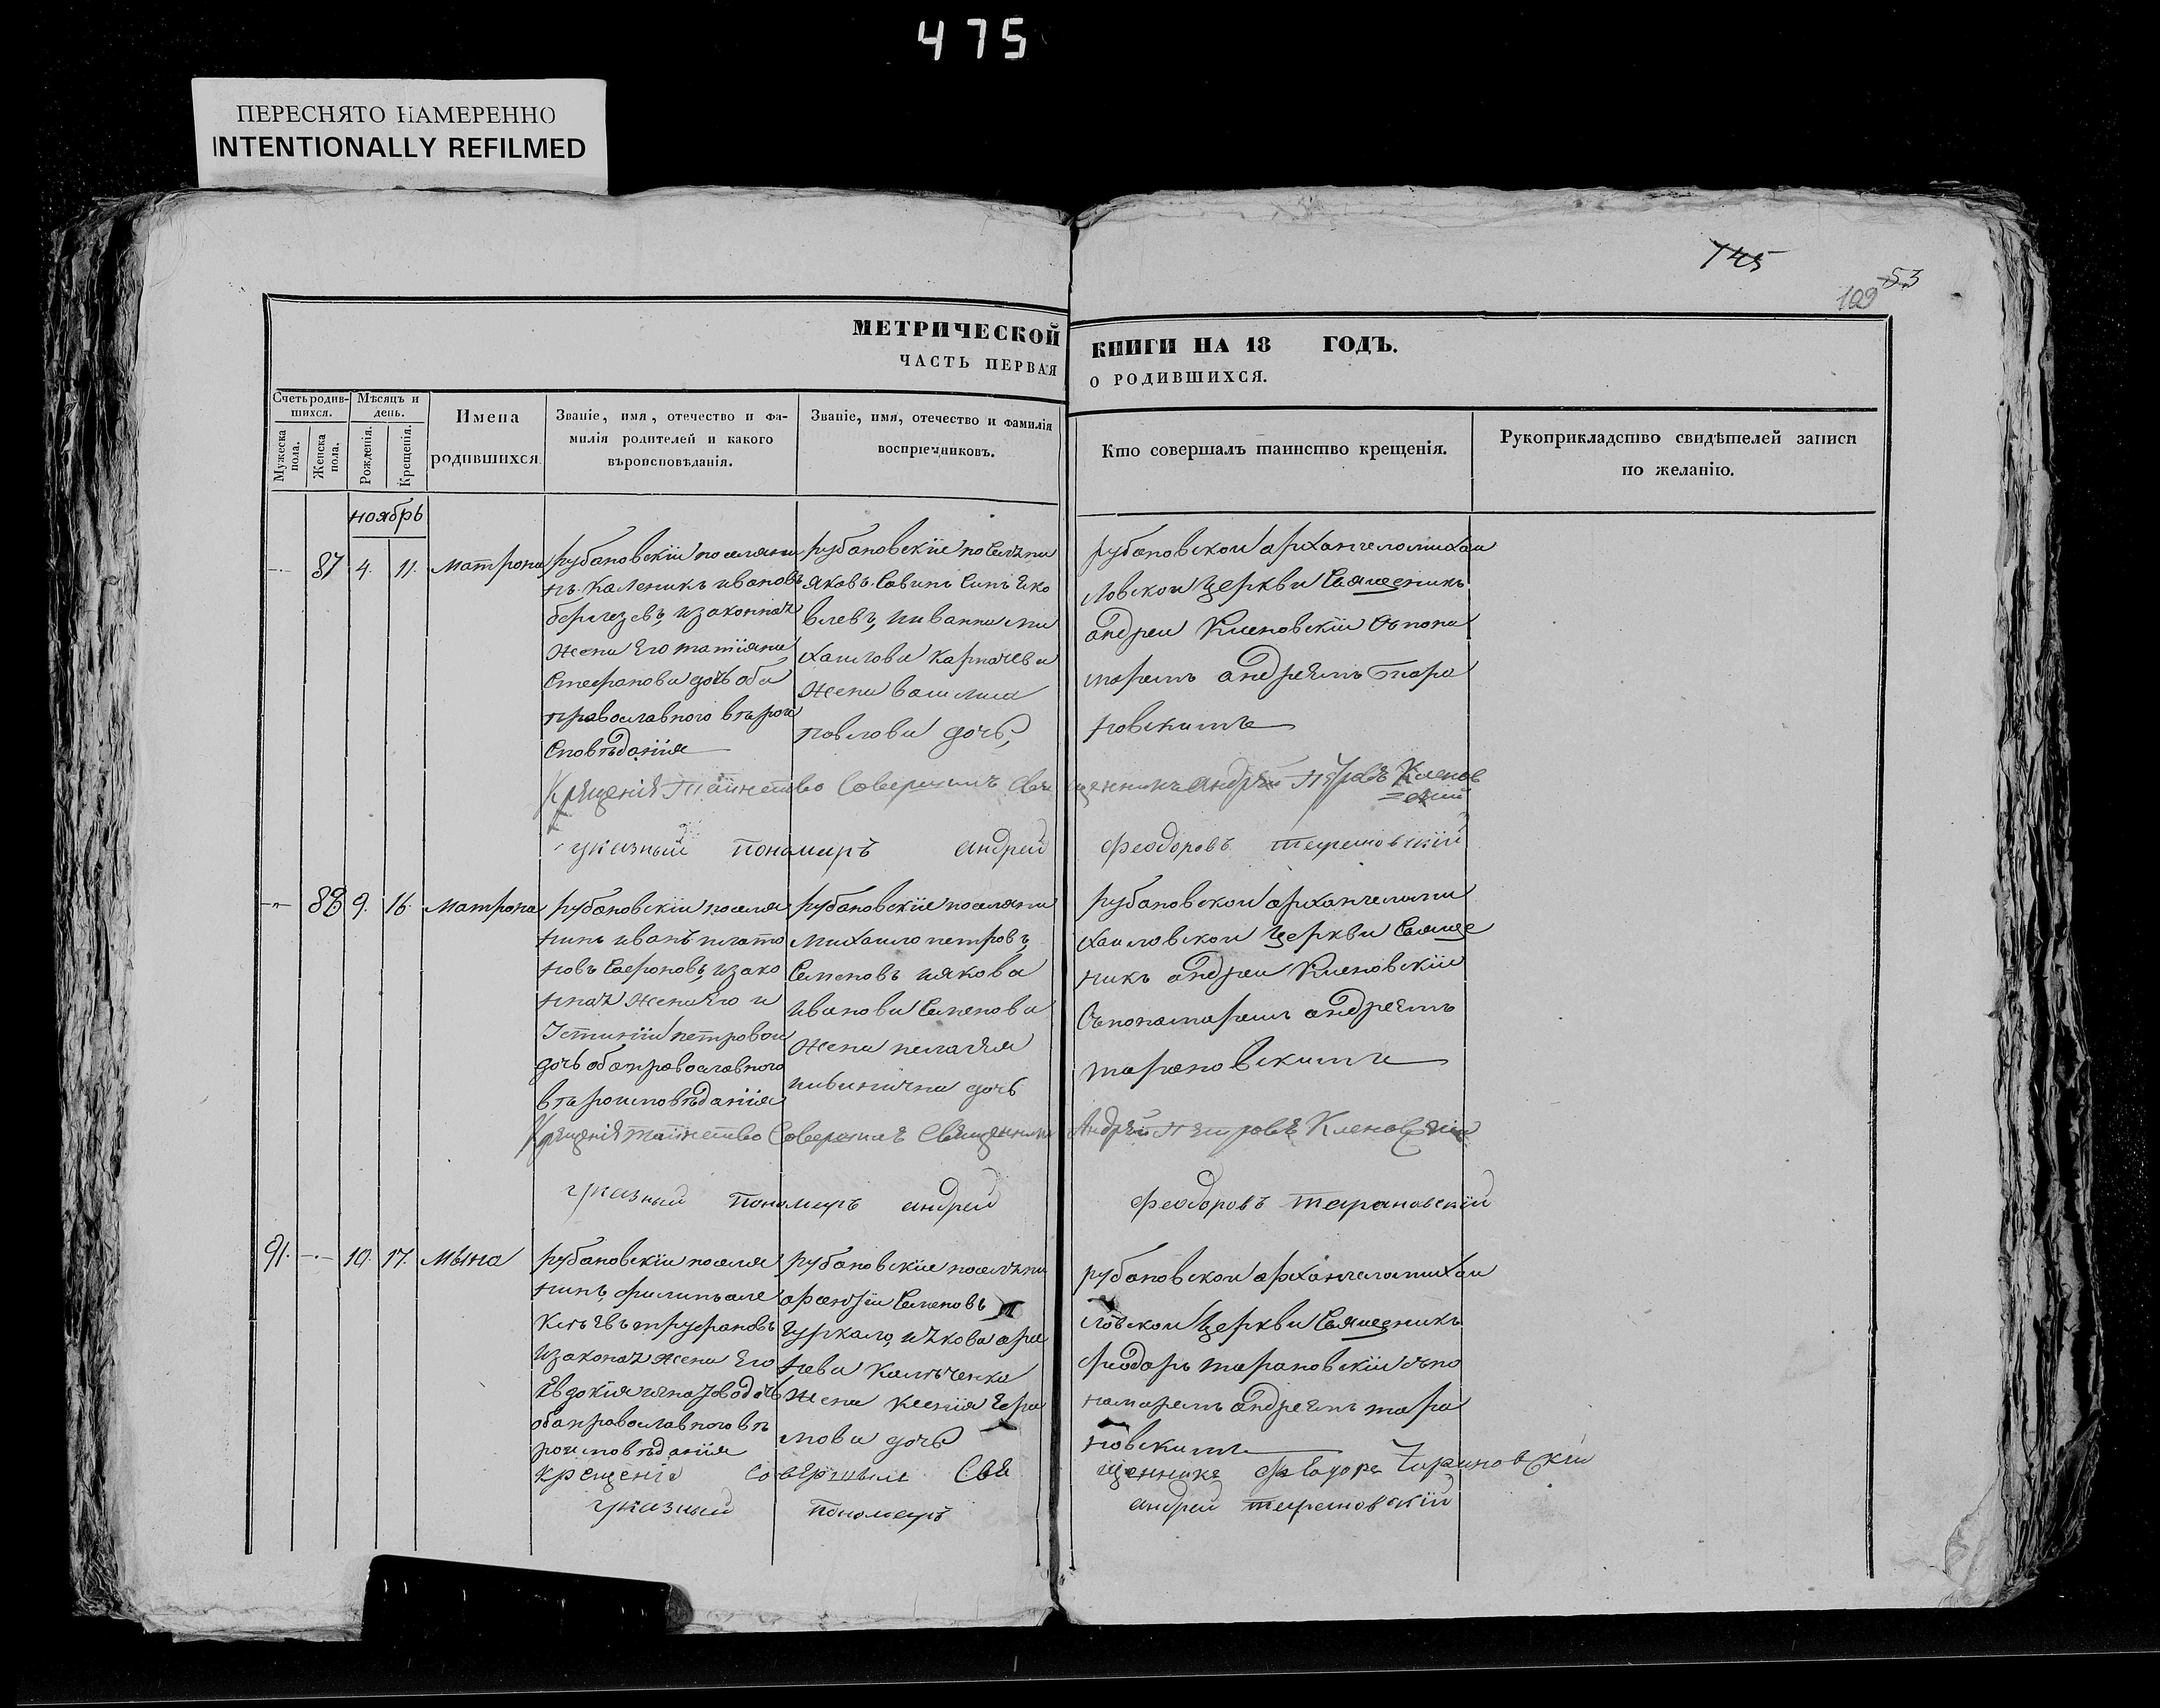 475
ПЕРЕСНЯТО НАМЕРЕННО
INTENTIONALLY REFILMED
145
109 53
МЕТРИЧЕСКОЙ
ЧАСТЬ ПЕРВАЯ
КНИГИ НА 18 ГОДЪ.
О РОДИВШИХСЯ.
Счетъ родив-
шихся.
Мужеска
пола.
Женска
пола.
Мѣсяцъ и
день.
Рожденія.
Крещенія.
Имена
родившихся
Званіе, имя, отечество и фа-
милія родителей и какого
вѣроисповѣданія.
Званіе, имя, отечество и фамилія
воспріемниковъ.
Кто совершалъ таинство крещенія.
Рукоприкладство свидѣтелей записи
по желанію.
ноябрь
87 4. 11. матрона
рубановскіи поселяни
нъ Каленикъ ивановъ
изаконная
жена Его татіяна
Стефанова дочь оба
православного вѣрои
сповѣданія
рубановскіе поселяни
яковъ Савинъ Синъ яко
влевъ, и ивана ми
хаилова
жена василиса
павлова дочь,
рубановскои архангеломихаи
ловскои церкви Священикъ
андреи Кленовскіи Съпона
маремъ андреемъ тара
новскимъ
Крещенія таинство Совершилъ Священникъ Андрей Петровъ Кленов
=скій
указный пономарь андрей феодоровъ тарановскій
88 9. 16. матрона
рубановскіи поселя
нинъ иванъ плато
новъ Сафоновъ, изако
нная жена Его и
Устинія петрова
дочь оба православного
вѣроисповѣданія
рубановскіе поселяни
михаило петровъ,
Семеновъ иякова
иванова Семенова
жена пелагея
дочь
рубановскои архангеломи
хаиловскои церкви Свяще
никъ андреи Кленовскіи
Съпонамаремъ андреемъ
тарановскимъ
Крещенія таинство Совершилъ Священникъ Андрей Петровъ Кленовскій
указный пономарь андрей феодоровъ тарановскій
91. 10. 17. мина
рубановскіи поселя
нинъ, филипъ але
ксѣевъ труфановъ
изаконая жена Его
Евдокія дочь
оба православного вѣ
роисповѣданія
рубановскіе поселяни
Семеновъ
Чуркало, иякова
жена Ксенія
мова дочь
рубановскои архангеломихаи
ловскои Церкви Священикъ
феодоръ тарановскіи съпо
намаремъ андреемъ тара
новскимъ
крещеніе совершилъ Священникъ Феодоръ Тарановскій
указный пономарь андрей тарановскій